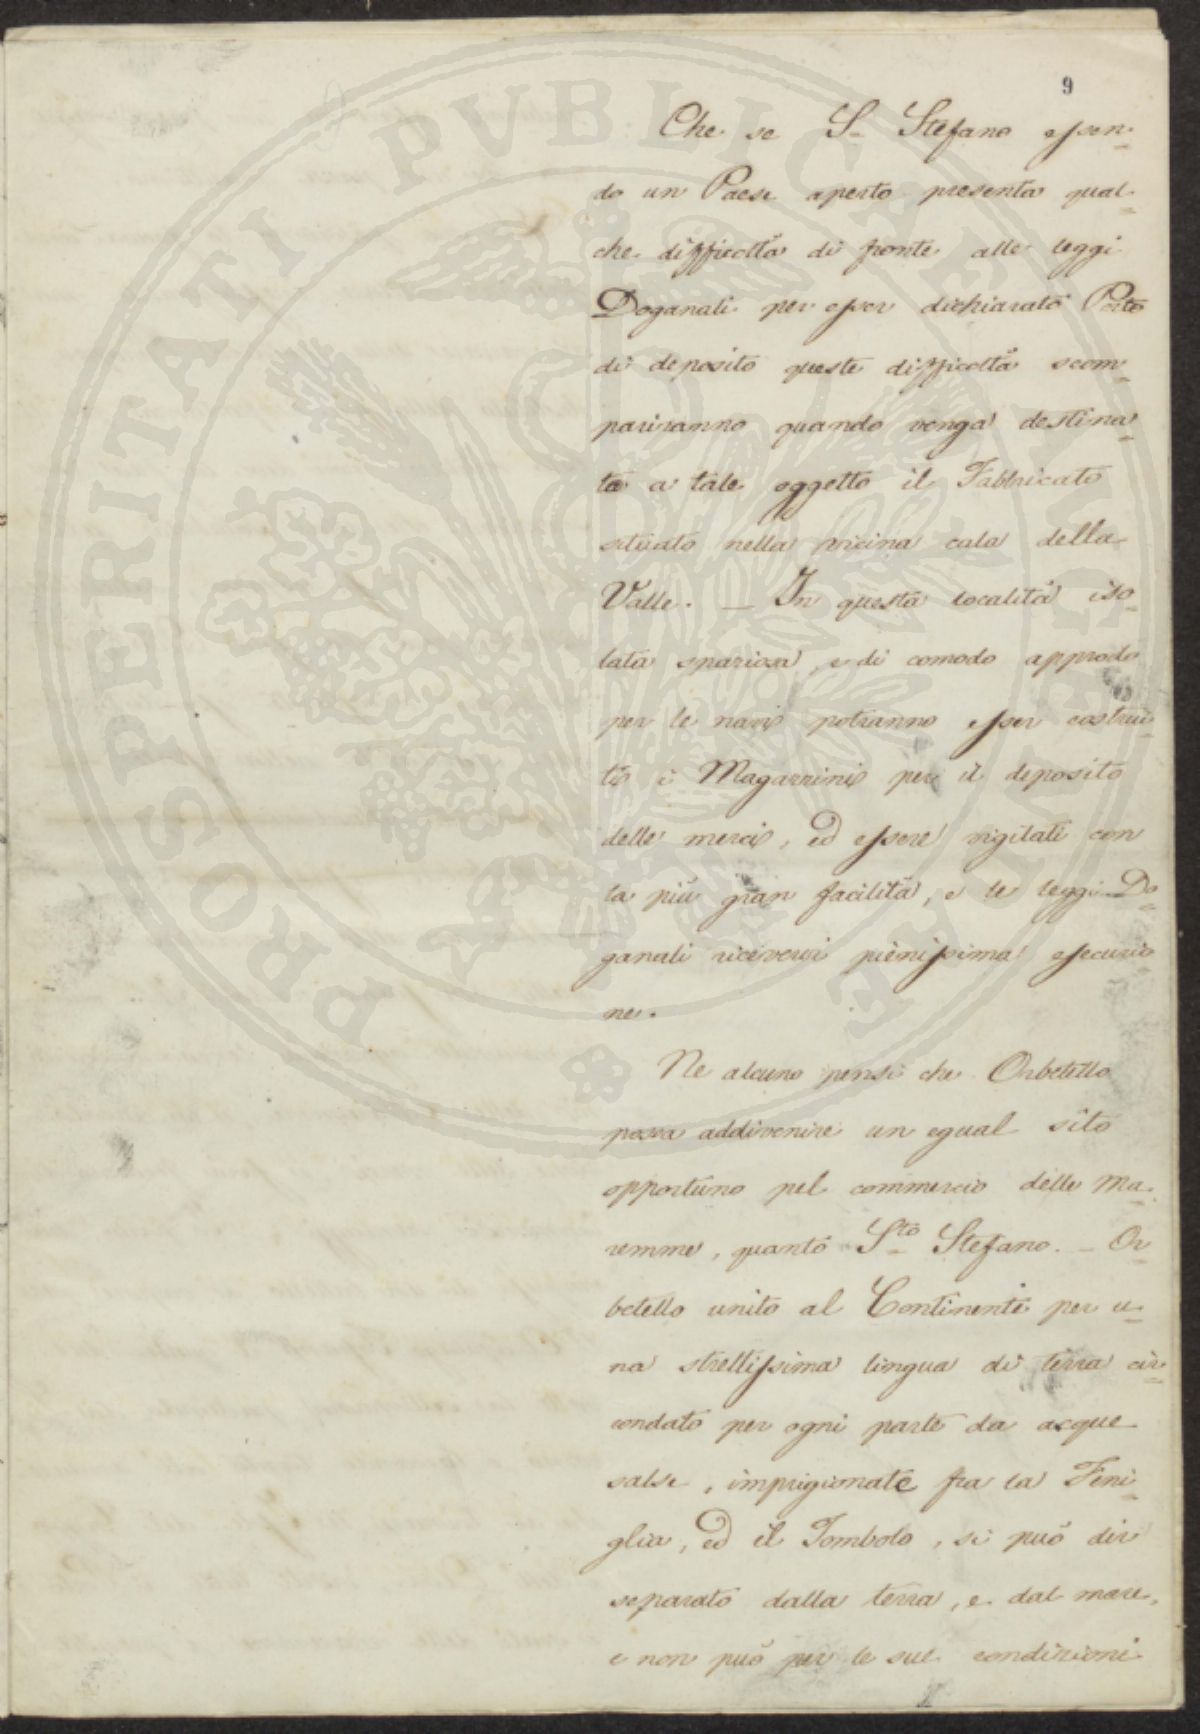 9
Che se S. Stefano essen-
do un Paese aperto presenta qual-
che difficoltà di fronte alle leggi
Doganali per esser dichiarato Porto
di deposito queste difficoltà scom-
pariranno quando venga destina-
to a tale oggetto il Fabbricato
situato nella vicina cala della
Valle. — In questa località iso-
lata spaziosa, e di comodo approdo
per le navi potranno esser costrui-
ti i Magazzini per il deposito
delle merci, ed essere vigilati con
la più gran facilità, e le leggi Do-
ganali ricevervi pienissima esecuzio-
ne.
Ne alcuno pensi che Orbetello
possa addivenire un egual sito
opportuno pel commercio delle Ma-
remme, quanto Sto Stefano. — Or-
betello unito al Continente per u-
na strettissima lingua di terra cir-
condato per ogni parte da acque
salse, imprigionate fra la Feni-
glia, ed il Tombolo, si può dir
separato dalla terra, e dal mare,
e non può per le sue condizioni
PROSPERITATI PVBLICAE AVGENDAE